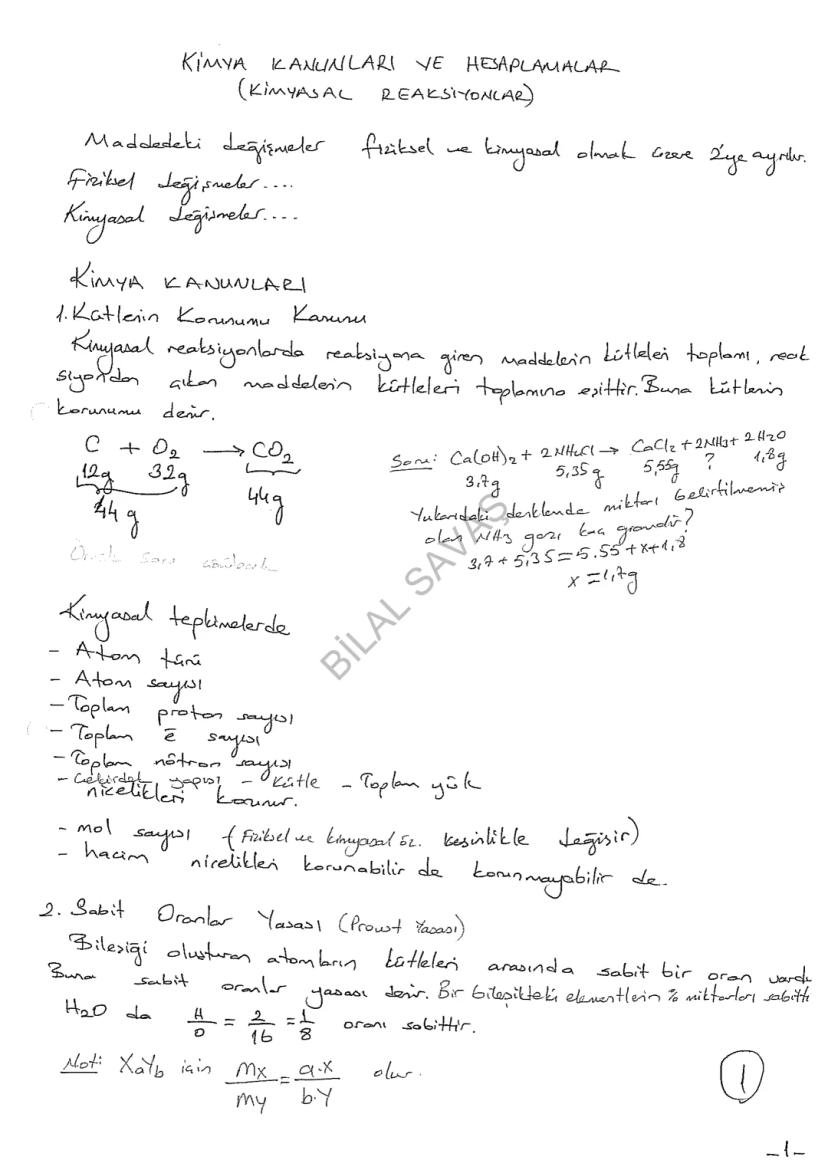 KİMYA KANUNLARI VE HESAPLAMALAR
(KİMYASAL REAKSİYONLAR)
Maddedeki değişmeler fiziksel ve kimyasal olmak üzere 2'ye ayrılır.
Fiziksel değişmeler....
Kimyasal değişmeler....
KİMYA KANUNLARI
1. Kütlenin Korunumu Kanunu
Kimyasal reaksiyonlarda reaksiyona giren maddelerin kütleleri toplamı, reak
siyondan çıkan maddelerin kütleleri toplamına eşittir. Buna kütlenin
korunumu denir.
C + O2 → CO2
12g 32g
44g
44 g
Örnek soru
Soru: Ca(OH)2 + 2NH4Cl → CaCl2 + 2NH3 + 2H2O
3,7g 5,35g 5,55g ? 1,8g
Yukarıdaki denklemde miktarı belirtilmemiş
olan NH3 gazı kaç gramdır?
3,7 + 5,35 = 5.55 + x + 1,8
x = 1,7g
BİLAL SAVAŞ
Kimyasal tepkimelerde
- Atom türü
- Atom sayısı
- Toplam proton sayısı
- Toplam ē sayısı
- Toplam nötron sayısı
- Çekirdek yapısı - Kütle - Toplam yük
nicelikleri korunur.
- mol sayısı (Fiziksel ve kimyasal öz. kesinlikle değişir)
- hacim nicelikleri korunabilir de korunmayabilir de.
2. Sabit Oranlar Yasası (Proust Yasası)
Bileşiği oluşturan atomların kütleleri arasında sabit bir oran vardır
Buna sabit oranlar yasası denir. Bir bileşikteki elementlerin % miktarları sabittir
H2O da H/O = 2/16 = 1/8 oranı sabittir.
Not: XaYb için mx/my = a.X/b.Y olur.
1
-1-